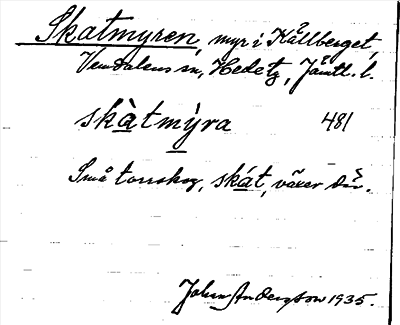 Skatmyren, myr i Kållberget,
Vemdalens sn, Hede tg, Jämtl. l.
skàtmỳra 481
Små torrskog, skát, växer där.
John Andersson 1935.